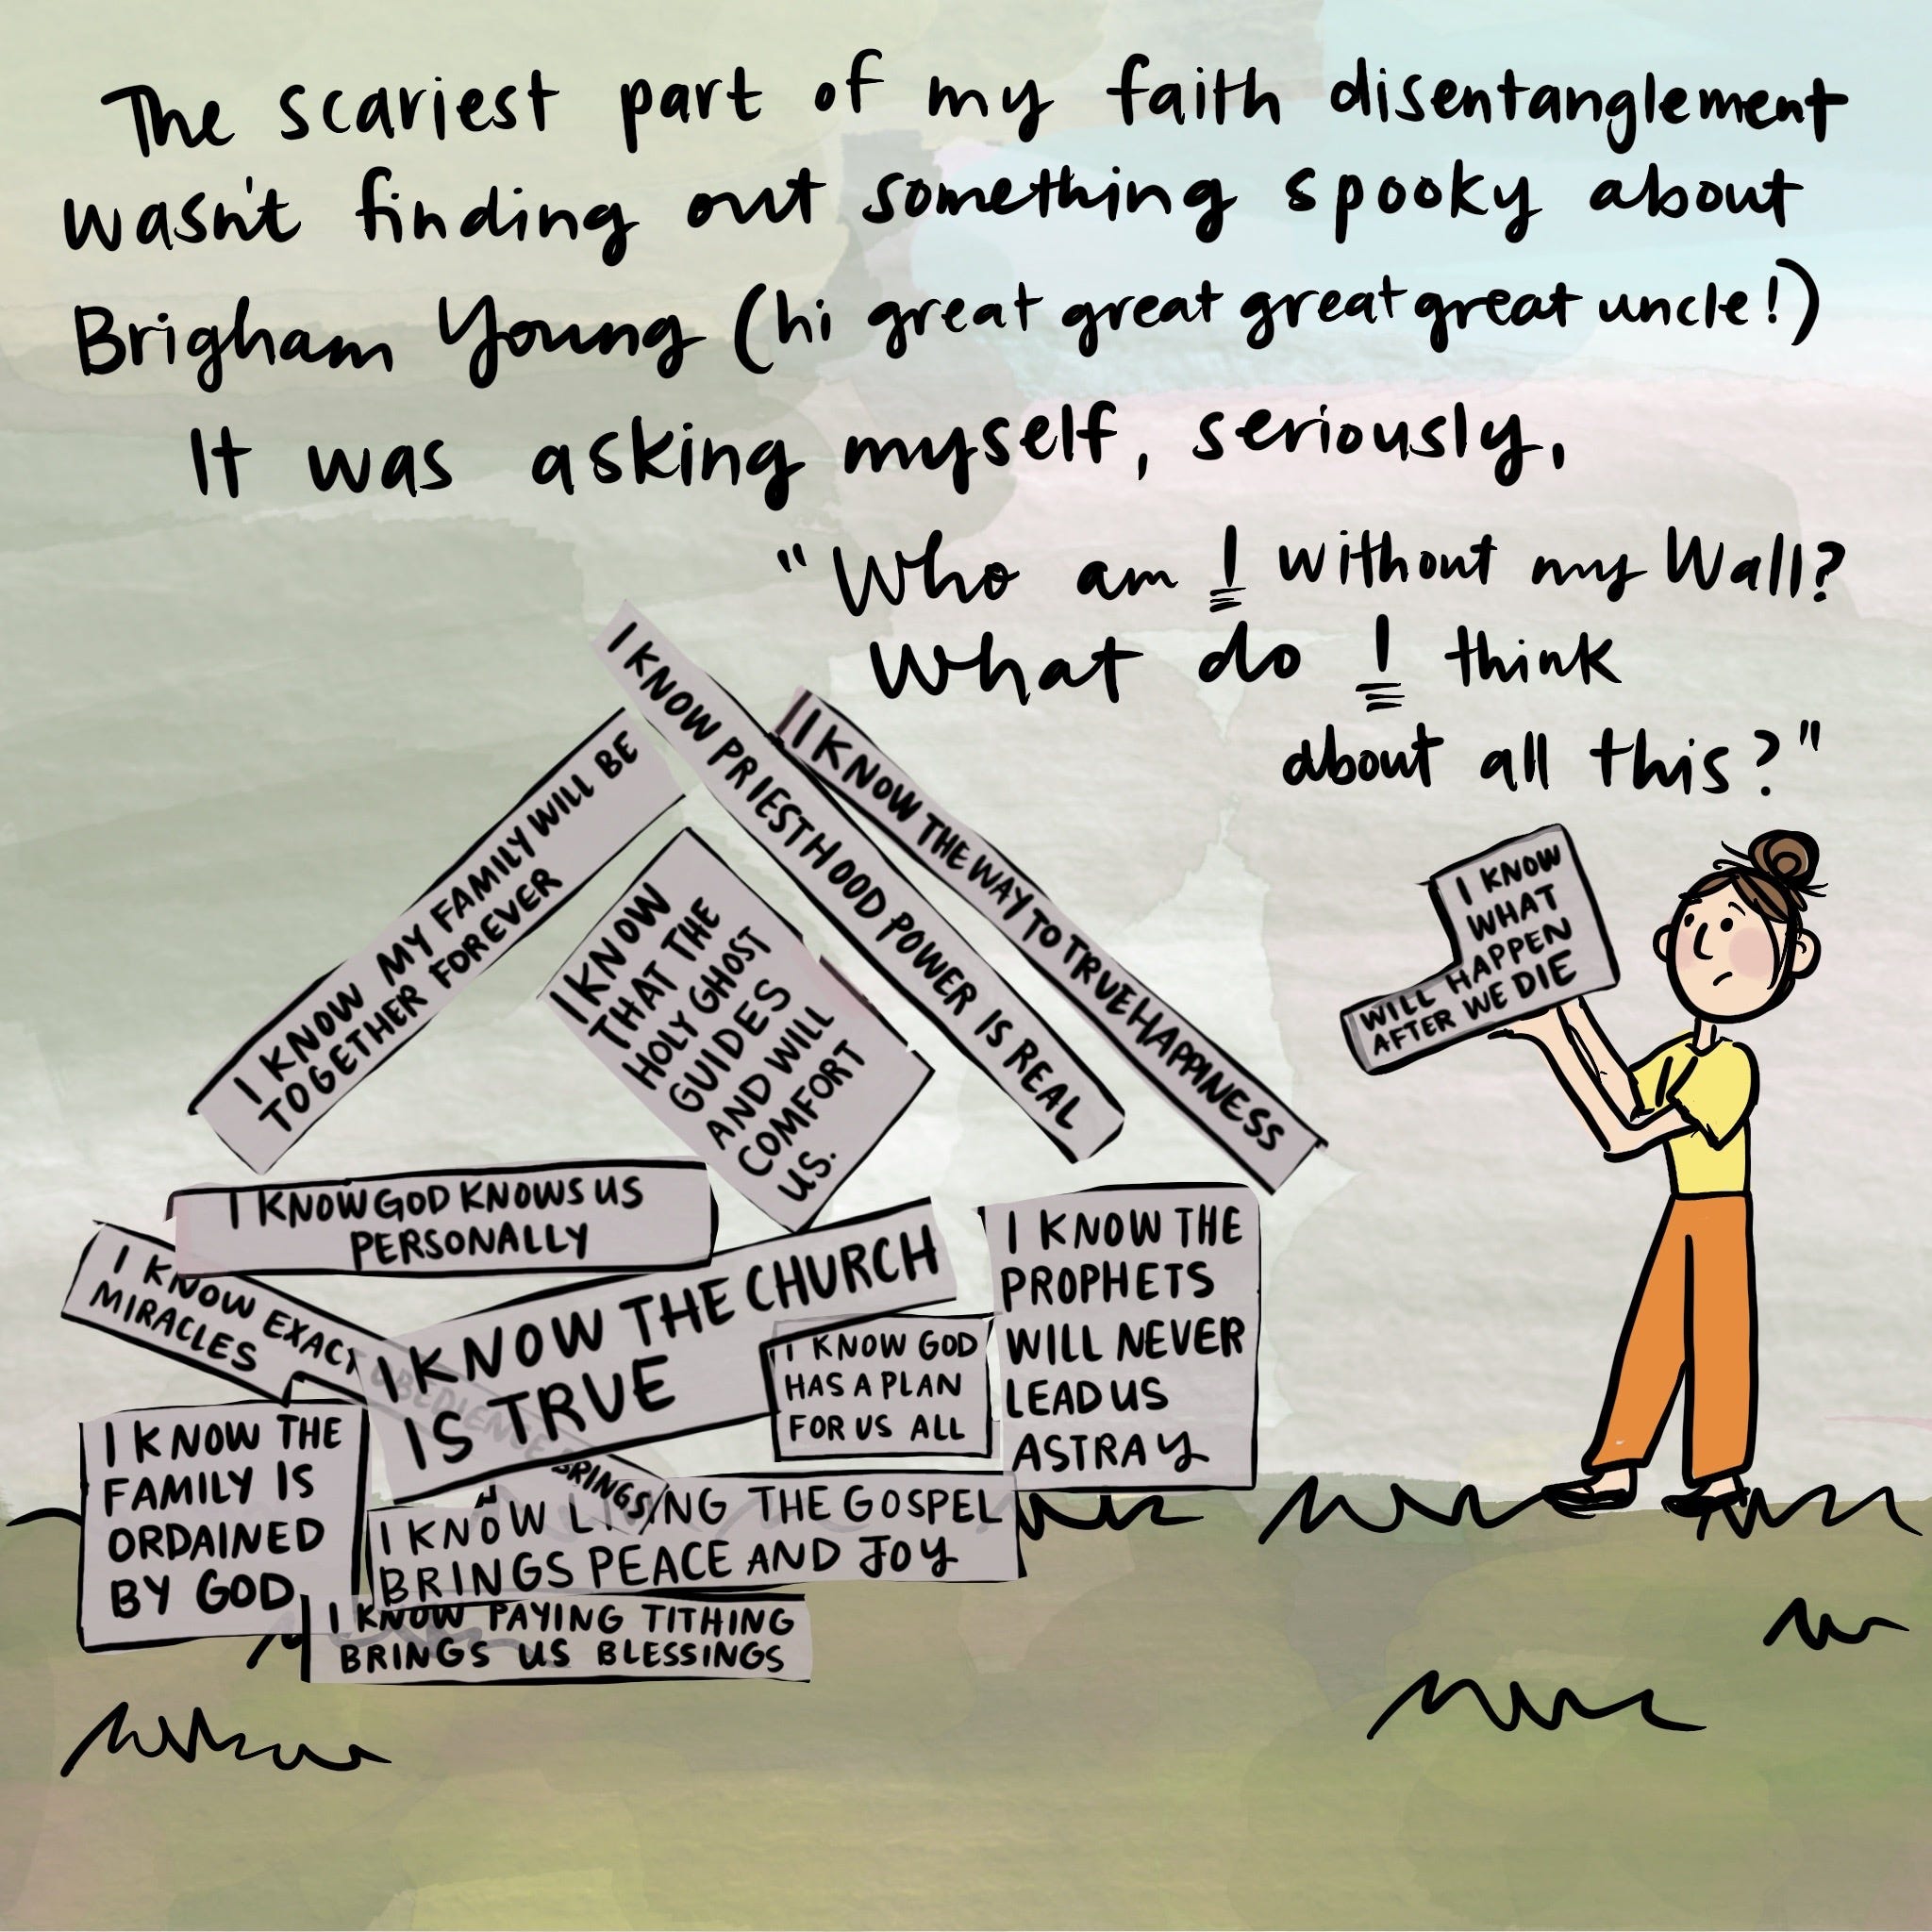 The scariest part of my faith disentanglement
wasn't finding out something spooky about
Brigham Young (hi great great great great uncle!)
It was asking myself, seriously,
"Who am I without my Wall?
What do I think
about all this?"
I KNOW MY FAMILY WILL BE
TOGETHER FOREVER
I KNOW PRIESTHOOD POWER IS REAL
I KNOW THE WAY TO TRUE HAPPINESS
I KNOW
THAT THE
HOLY GHOST
GUIDES
AND WILL
COMFORT
US.
I KNOW
WHAT
WILL HAPPEN
AFTER WE DIE
I KNOW GOD KNOWS US
PERSONALLY
I KNOW EXACT OBEDIENCE BRINGS
MIRACLES
I KNOW THE CHURCH
IS TRUE
I KNOW GOD
HAS A PLAN
FOR US ALL
I KNOW THE
PROPHETS
WILL NEVER
LEAD US
ASTRAY
I KNOW THE
FAMILY IS
ORDAINED
BY GOD
I KNOW LIVING THE GOSPEL
BRINGS PEACE AND JOY
I KNOW PAYING TITHING
BRINGS US BLESSINGS